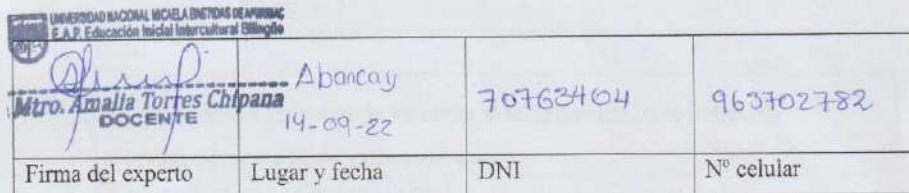 UNIVERSIDAD NACIONAL MICAELA BASTIDAS DE APURIMAC
E.A.P. Educación Inicial Intercultural Bilingüe
Mtro. Amalia Torres Chipana
DOCENTE
Abancay
14-09-22
70763404
963702782
Firma del experto
Lugar y fecha
DNI
Nº celular